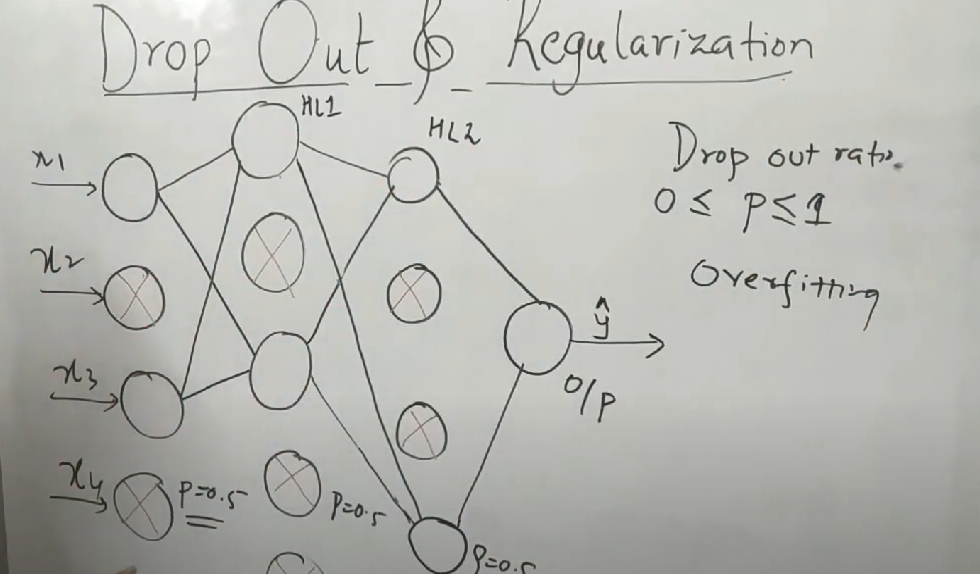 Drop Out & Regularization
HL1
HL2
x1
x2
x3
x4
P=0.5
P=0.5
P=0.5
ŷ
O/P
Drop out ratio.
0 ≤ P ≤ 1
Overfitting